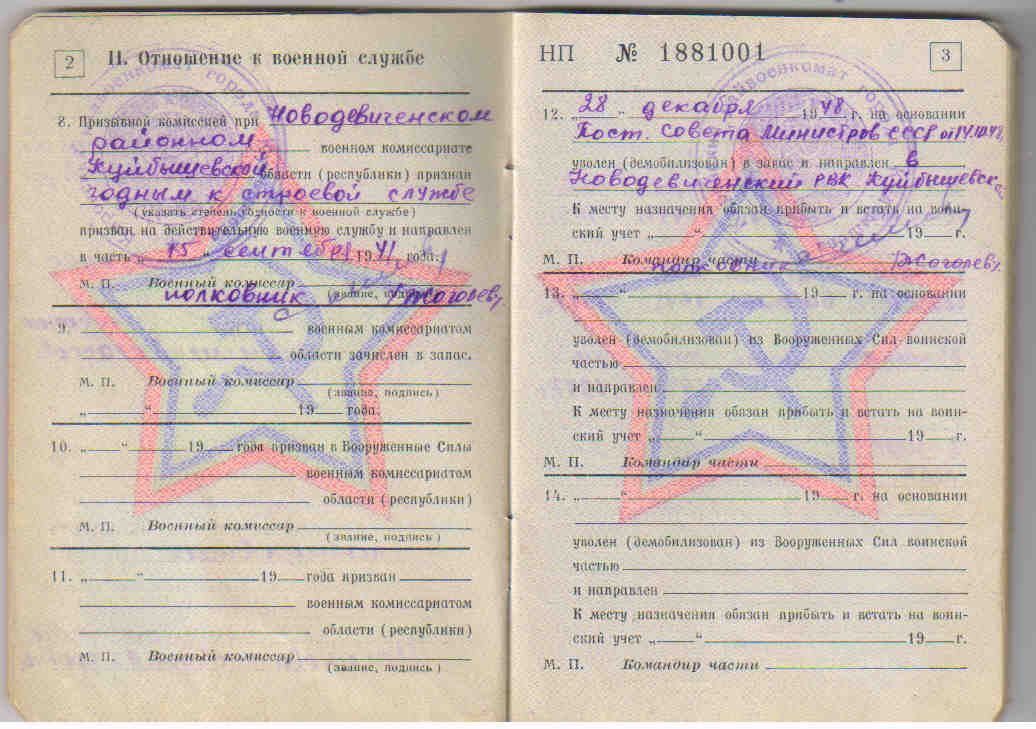 2
II. Отношение к военной службе
8. Призывной комиссией при Новодевиченском
районном военном комиссариате
Куйбышевской области (республики) признан
годным к строевой службе
(указать степень годности к военной службе)
призван на действительную военную службу и направлен
в часть „15“ сентября 1941 года.
М. П. Военный комиссар
полковник (звание, подпись)
9. военным комиссариатом
области зачислен в запас.
М. П. Военный комиссар
(звание, подпись)
„ “ 19 года.
10. „ “ 19 года призван в Вооруженные Силы
военным комиссариатом
области (республики)
М. П. Военный комиссар
(звание, подпись)
11. „ “ 19 года призван
военным комиссариатом
области (республики)
М. П. Военный комиссар
(звание, подпись)
НП № 1881001
3
12. „28“ декабря 1948 г. на основании
Пост. Совета Министров СССР от
уволен (демобилизован) в запас и направлен в
Новодевиченский РВК Куйбышевск
К месту назначения обязан прибыть и встать на воин-
ский учет „ “ 19 г.
М. П. Командир части
полковник
13. „ “ 19 г. на основании
уволен (демобилизован) из Вооруженных Сил воинской
частью
и направлен
К месту назначения обязан прибыть и встать на воин-
ский учет „ “ 19 г.
М. П. Командир части
14. „ “ 19 г. на основании
уволен (демобилизован) из Вооруженных Сил воинской
частью
и направлен
К месту назначения обязан прибыть и встать на воин-
ский учет „ “ 19 г.
М. П. Командир части